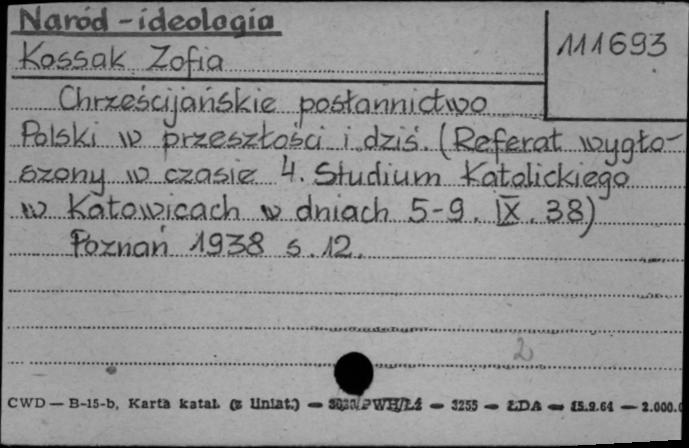 Naród - ideologia
111693
Kossak Zofia
Chrześcijańskie posłannictwo
Polski w przeszłości i dziś. (Referat wygło-
szony w czasie 4. Studium Katolickiego
w Katowicach w dniach 5-9. IX. 38)
Poznań 1938 s. 12.
2
CWD — B-15-b, Karta katal. (z liniat.) — PWH/Łź — 3255 — ŁDA — 15.9.64 — 2.000.0